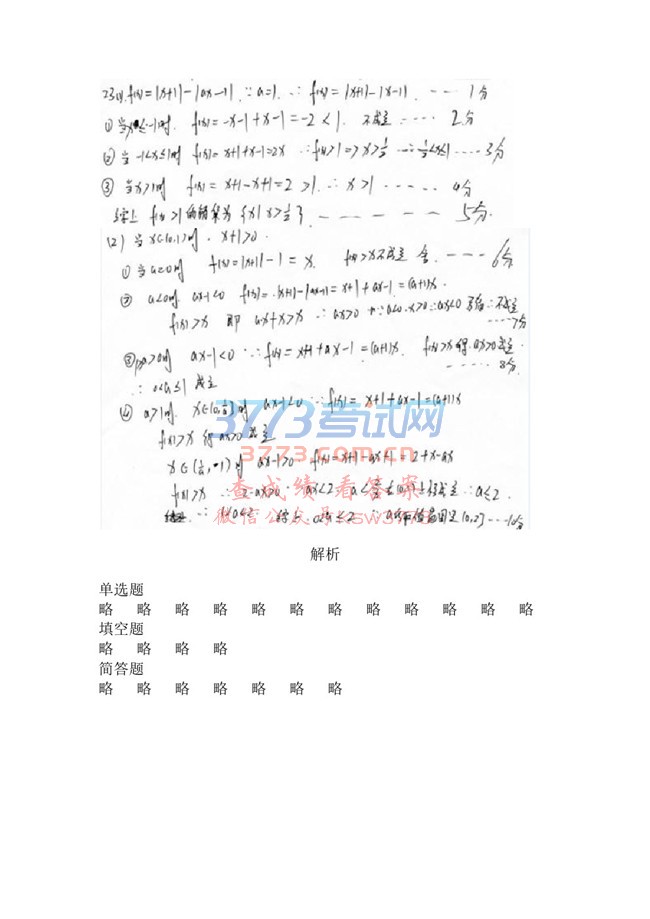 23(1). f(x)=|x+1|-|ax-1|. ∵a=1. ∴ f(x)=|x+1|-|x-1|. ---- 1分
① 当x≤-1时. f(x)=-x-1+x-1=-2<1. 不成立 ---- 2分
② 当 -1<x≤1时 f(x)=x+1+x-1=2x ∴f(x)>1=>x>1/2 ∴1/2<x≤1 ---- 3分
③ 当x>1时 f(x)=x+1-x+1=2>1 ∴x>1 ----- 4分
综上 f(x)>1的解集为{x|x>1/2}. ---- 5分.
(2) 当x∈(0,1)时. x+1>0.
① 当a=0时 f(x)=|x+1|-1=x. f(x)>x不成立 舍. ---- 6分
② a<0时. ax-1<0 f(x)=|x+1|-|ax-1|=x+1+ax-1=(a+1)x.
f(x)>x 即 ax+x>x ∴ax>0 ∵a<0.x>0∴ax<0 ∴不成立
----- 7分
ax-1<0 ∴f(x)=x+1+ax-1=(a+1)x. f(x)>x得ax>0成立.
----- 8分.
∴0<a≤1 成立
④ a>1时. ax-1<0 ∴f(x)=x+1+ax-1=(a+1)x
f(x)>x 得 ax>0 成立
ax-1>0 =2+x-ax
f(x)>x ∴2-ax>0 ∴ax<2 ∴a≤2.
综上 0<a≤2 ∴a的取值范围是(0,2] ---10分
3773考试网
3773.com.cn
查成绩看答案
微信公众号
解析
单选题
略 略 略 略 略 略 略 略 略 略 略 略
填空题
略 略 略 略
简答题
略 略 略 略 略 略 略